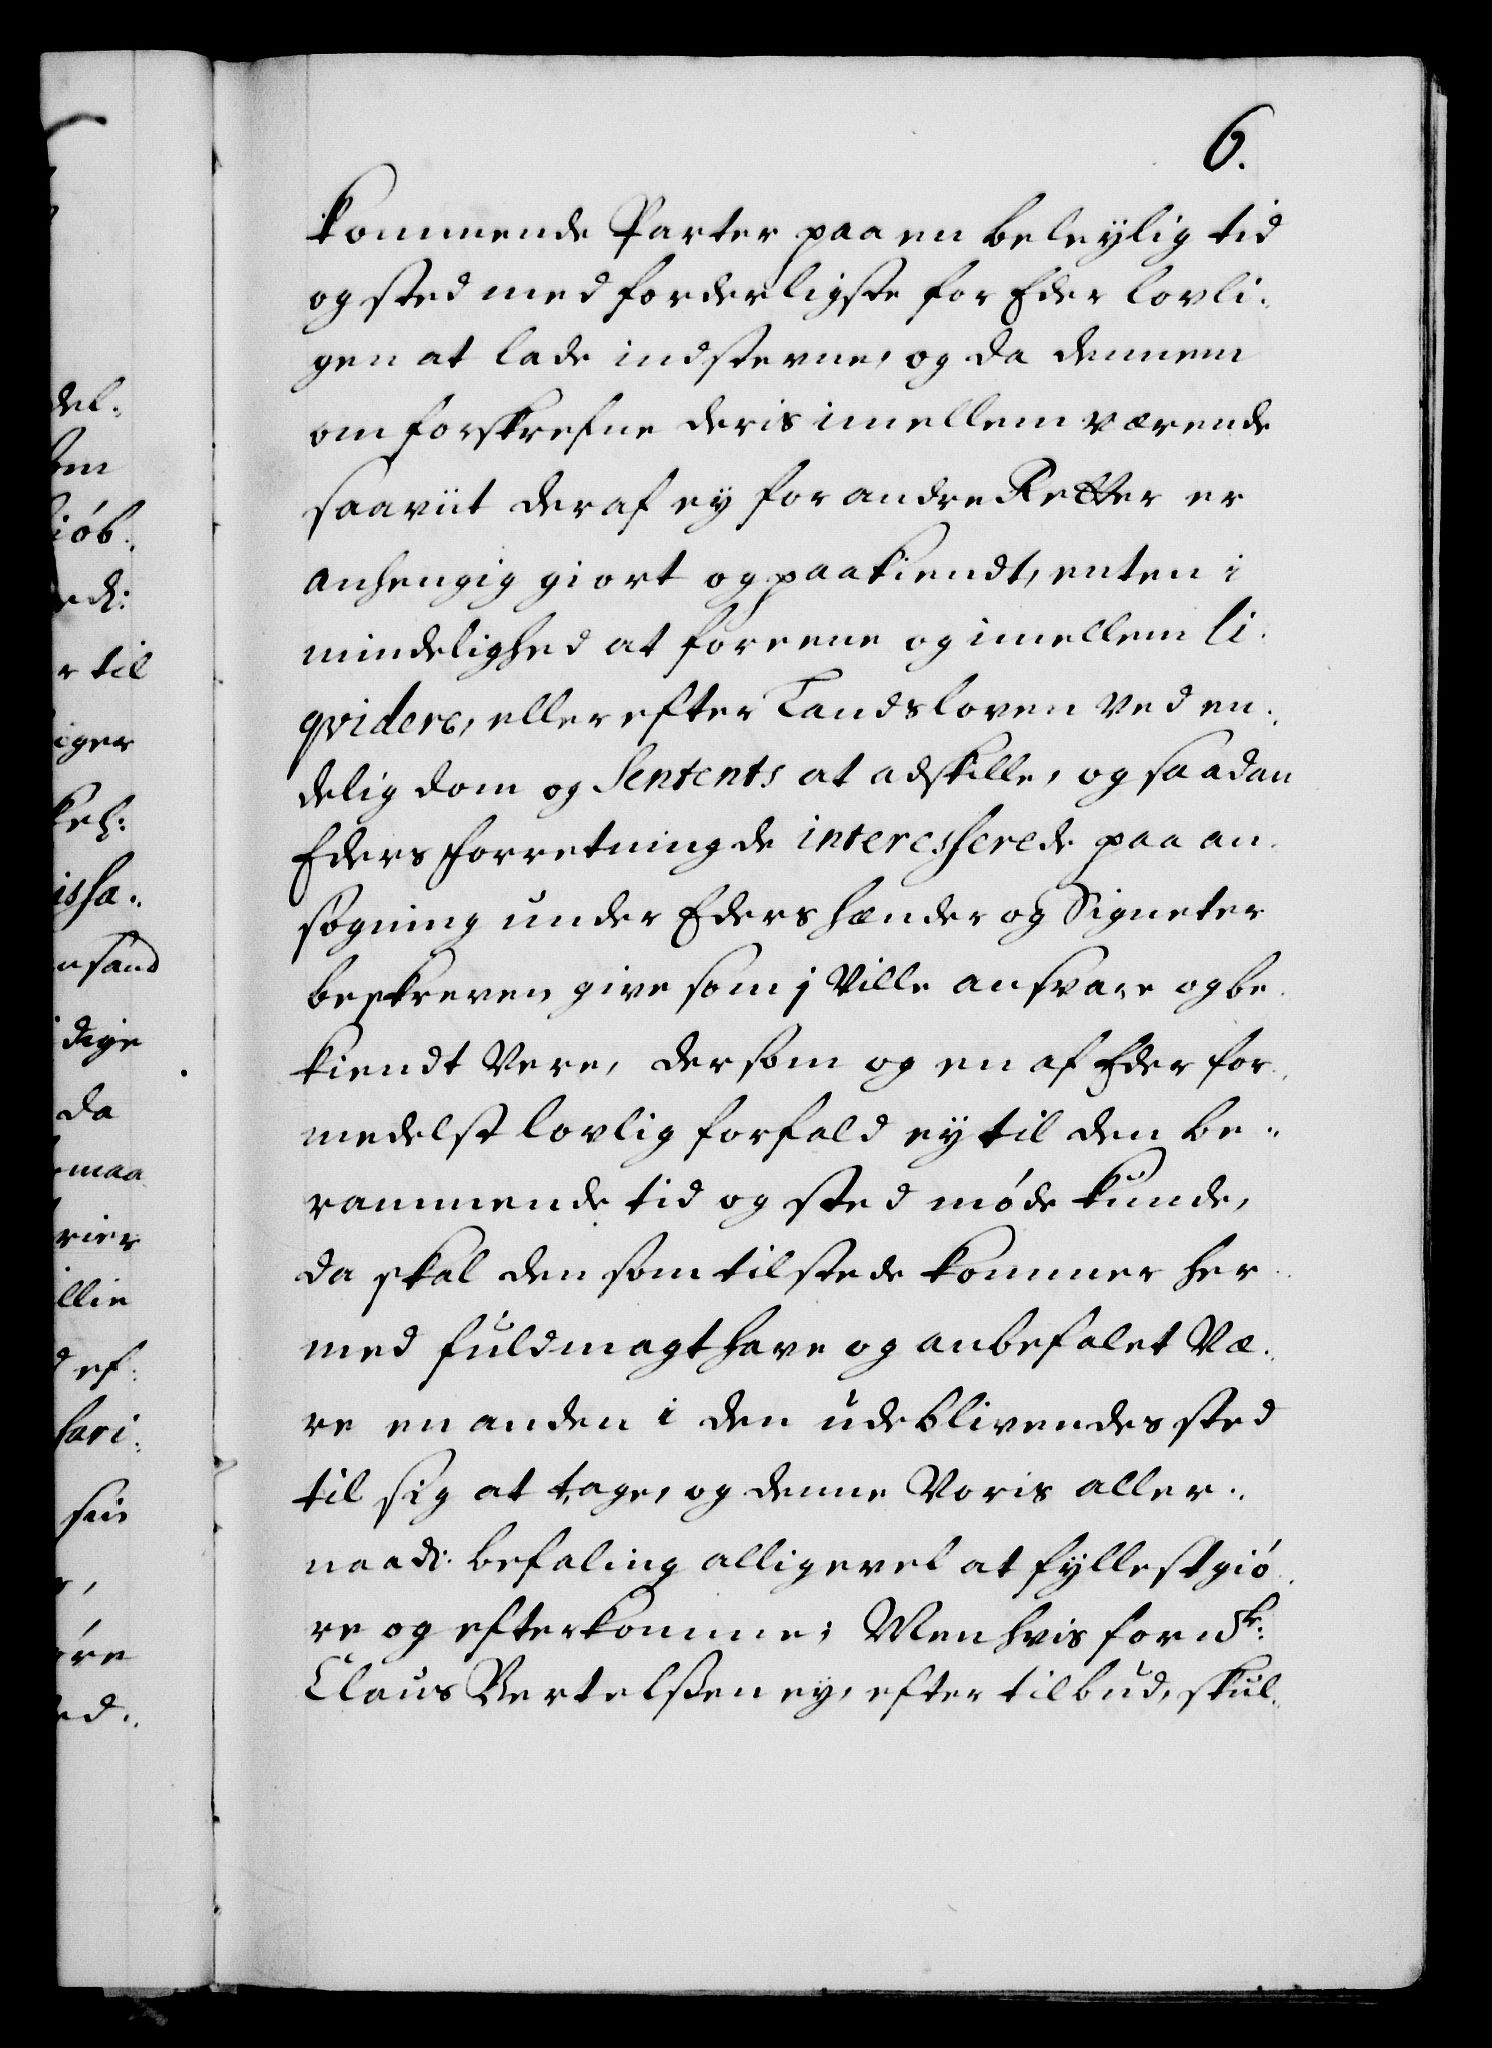 6.
kommende Parter paa en beleylig tid
og sted med forderligste for Eder lovli-
gen at lade indstevne, og da dennem
om forskrefne deris imellem værende
saaviit deraf ey for andre Retter er
anhengig giort og paakiendt, enten i
mindelighed at foreene og imellem li-
qvidere, eller efter Landsloven ved en-
delig dom og Sentents at adskille, og saadan
Eders forretning de interesserede paa an-
søgning under Eders hænder og Signeter
beskreven give som j ville ansvare og be-
kiendt vere, dersom og en af Eder for-
medelst lovlig forfald ey til den be-
rammende tid og sted møde kunde,
da skal den som tilstede kommer her-
med fuldmagt have og anbefalet væ-
re en anden i den udeblivendes sted
til sig at tage, og denne Voris aller-
naadi: befaling alligevel at fyllestgiø-
re og efterkomme; Men hvis for:ske:
Claus Bertelßen ey, efter tilbud, skul-
del:
iøb:
til
iger
issa-
sand
dige
da
maa
rier
llie
ef:
sari:
øre